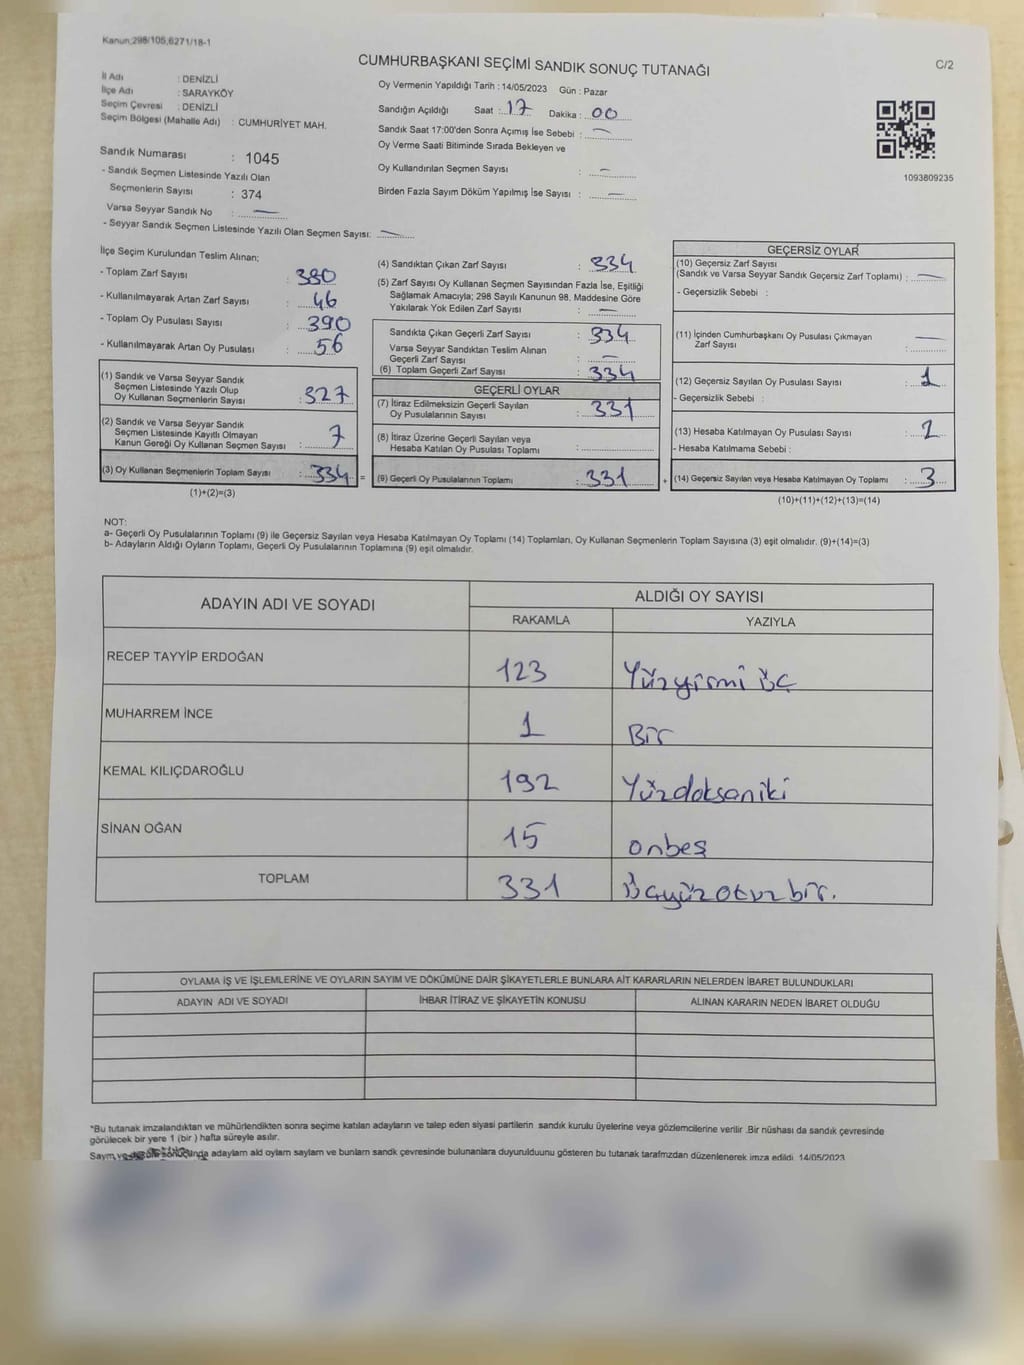 Kanun;298/105,6271/18-1
CUMHURBAŞKANI SEÇİMİ SANDIK SONUÇ TUTANAĞI
C/2
İl Adı : DENİZLİ
İlçe Adı : SARAYKÖY
Seçim Çevresi : DENİZLİ
Seçim Bölgesi (Mahalle Adı) : CUMHURİYET MAH.
Sandık Numarası : 1045
- Sandık Seçmen Listesinde Yazılı Olan
Seçmenlerin Sayısı : 374
Varsa Seyyar Sandık No : —
- Seyyar Sandık Seçmen Listesinde Yazılı Olan Seçmen Sayısı: —
Oy Vermenin Yapıldığı Tarih : 14/05/2023 Gün : Pazar
Sandığın Açıldığı Saat : 17 Dakika : 00
Sandık Saat 17:00'den Sonra Açımış İse Sebebi : —
Oy Verme Saati Bitiminde Sırada Bekleyen ve
Oy Kullandırılan Seçmen Sayısı : —
Birden Fazla Sayım Döküm Yapılmış İse Sayısı : —
1093809235
İlçe Seçim Kurulundan Teslim Alınan;
- Toplam Zarf Sayısı : 380
- Kullanılmayarak Artan Zarf Sayısı : 46
- Toplam Oy Pusulası Sayısı : 390
- Kullanılmayarak Artan Oy Pusulası : 56
(1) Sandık ve Varsa Seyyar Sandık
Seçmen Listesinde Yazılı Olup
Oy Kullanan Seçmenlerin Sayısı : 327
(2) Sandık ve Varsa Seyyar Sandık
Seçmen Listesinde Kayıtlı Olmayan
Kanun Gereği Oy Kullanan Seçmen Sayısı : 7
(3) Oy Kullanan Seçmenlerin Toplam Sayısı : 334 =
(1)+(2)=(3)
(4) Sandıktan Çıkan Zarf Sayısı : 334
(5) Zarf Sayısı Oy Kullanan Seçmen Sayısından Fazla İse, Eşitliği
Sağlamak Amacıyla; 298 Sayılı Kanunun 98. Maddesine Göre
Yakılarak Yok Edilen Zarf Sayısı : —
Sandıkta Çıkan Geçerli Zarf Sayısı : 334
Varsa Seyyar Sandıktan Teslim Alınan
Geçerli Zarf Sayısı : —
(6) Toplam Geçerli Zarf Sayısı : 334
GEÇERLİ OYLAR
(7) İtiraz Edilmeksizin Geçerli Sayılan
Oy Pusulalarının Sayısı : 331
(8) İtiraz Üzerine Geçerli Sayılan veya
Hesaba Katılan Oy Pusulası Toplamı :
(9) Geçerli Oy Pusulalarının Toplamı : 331 +
GEÇERSİZ OYLAR
(10) Geçersiz Zarf Sayısı
(Sandık ve Varsa Seyyar Sandık Geçersiz Zarf Toplamı) : —
- Geçersizlik Sebebi :
(11) İçinden Cumhurbaşkanı Oy Pusulası Çıkmayan
Zarf Sayısı : —
(12) Geçersiz Sayılan Oy Pusulası Sayısı : 1
- Geçersizlik Sebebi :
(13) Hesaba Katılmayan Oy Pusulası Sayısı : 2
- Hesaba Katılmama Sebebi :
(14) Geçersiz Sayılan veya Hesaba Katılmayan Oy Toplamı : 3
(10)+(11)+(12)+(13)=(14)
NOT:
a- Geçerli Oy Pusulalarının Toplamı (9) ile Geçersiz Sayılan veya Hesaba Katılmayan Oy Toplamı (14) Toplamları, Oy Kullanan Seçmenlerin Toplam Sayısına (3) eşit olmalıdır. (9)+(14)=(3)
b- Adayların Aldığı Oyların Toplamı, Geçerli Oy Pusulalarının Toplamına (9) eşit olmalıdır.
ADAYIN ADI VE SOYADI
ALDIĞI OY SAYISI
RAKAMLA YAZIYLA
RECEP TAYYİP ERDOĞAN 123 Yüzyirmi üç
MUHARREM İNCE 1 Bir
KEMAL KILIÇDAROĞLU 192 Yüzdoksaniki
SİNAN OĞAN 15 onbeş
TOPLAM 331 Üçyüzotuzbir.
OYLAMA İŞ VE İŞLEMLERİNE VE OYLARIN SAYIM VE DÖKÜMÜNE DAİR ŞİKAYETLERLE BUNLARA AİT KARARLARIN NELERDEN İBARET BULUNDUKLARI
ADAYIN ADI VE SOYADI İHBAR İTİRAZ VE ŞİKAYETİN KONUSU ALINAN KARARIN NEDEN İBARET OLDUĞU
*Bu tutanak imzalandıktan ve mühürlendikten sonra seçime katılan adayların ve talep eden siyasi partilerin sandık kurulu üyelerine veya gözlemcilerine verilir .Bir nüshası da sandık çevresinde
görülecek bir yere 1 (bir ) hafta süreyle asılır.
Saym, ve sonucunda adaylam ald oylam saylam ve bunlam sandk çevresinde bulunanlara duyurulduunu gösteren bu tutanak tarafmzdan düzenlenerek imza edildi. 14/05/2023